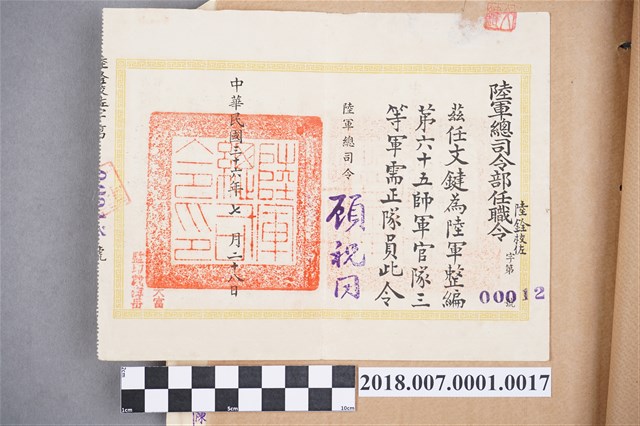 陸軍總司令部任職令
陸銓校佐字第00012號
茲任文鍵為陸軍整編
第六十五師軍官隊三
等軍需正隊員此令
陸軍總司令
顧祝同
中華民國三十六年七月二十八日
1cm
5cm
10cm
2018.007.0001.0017